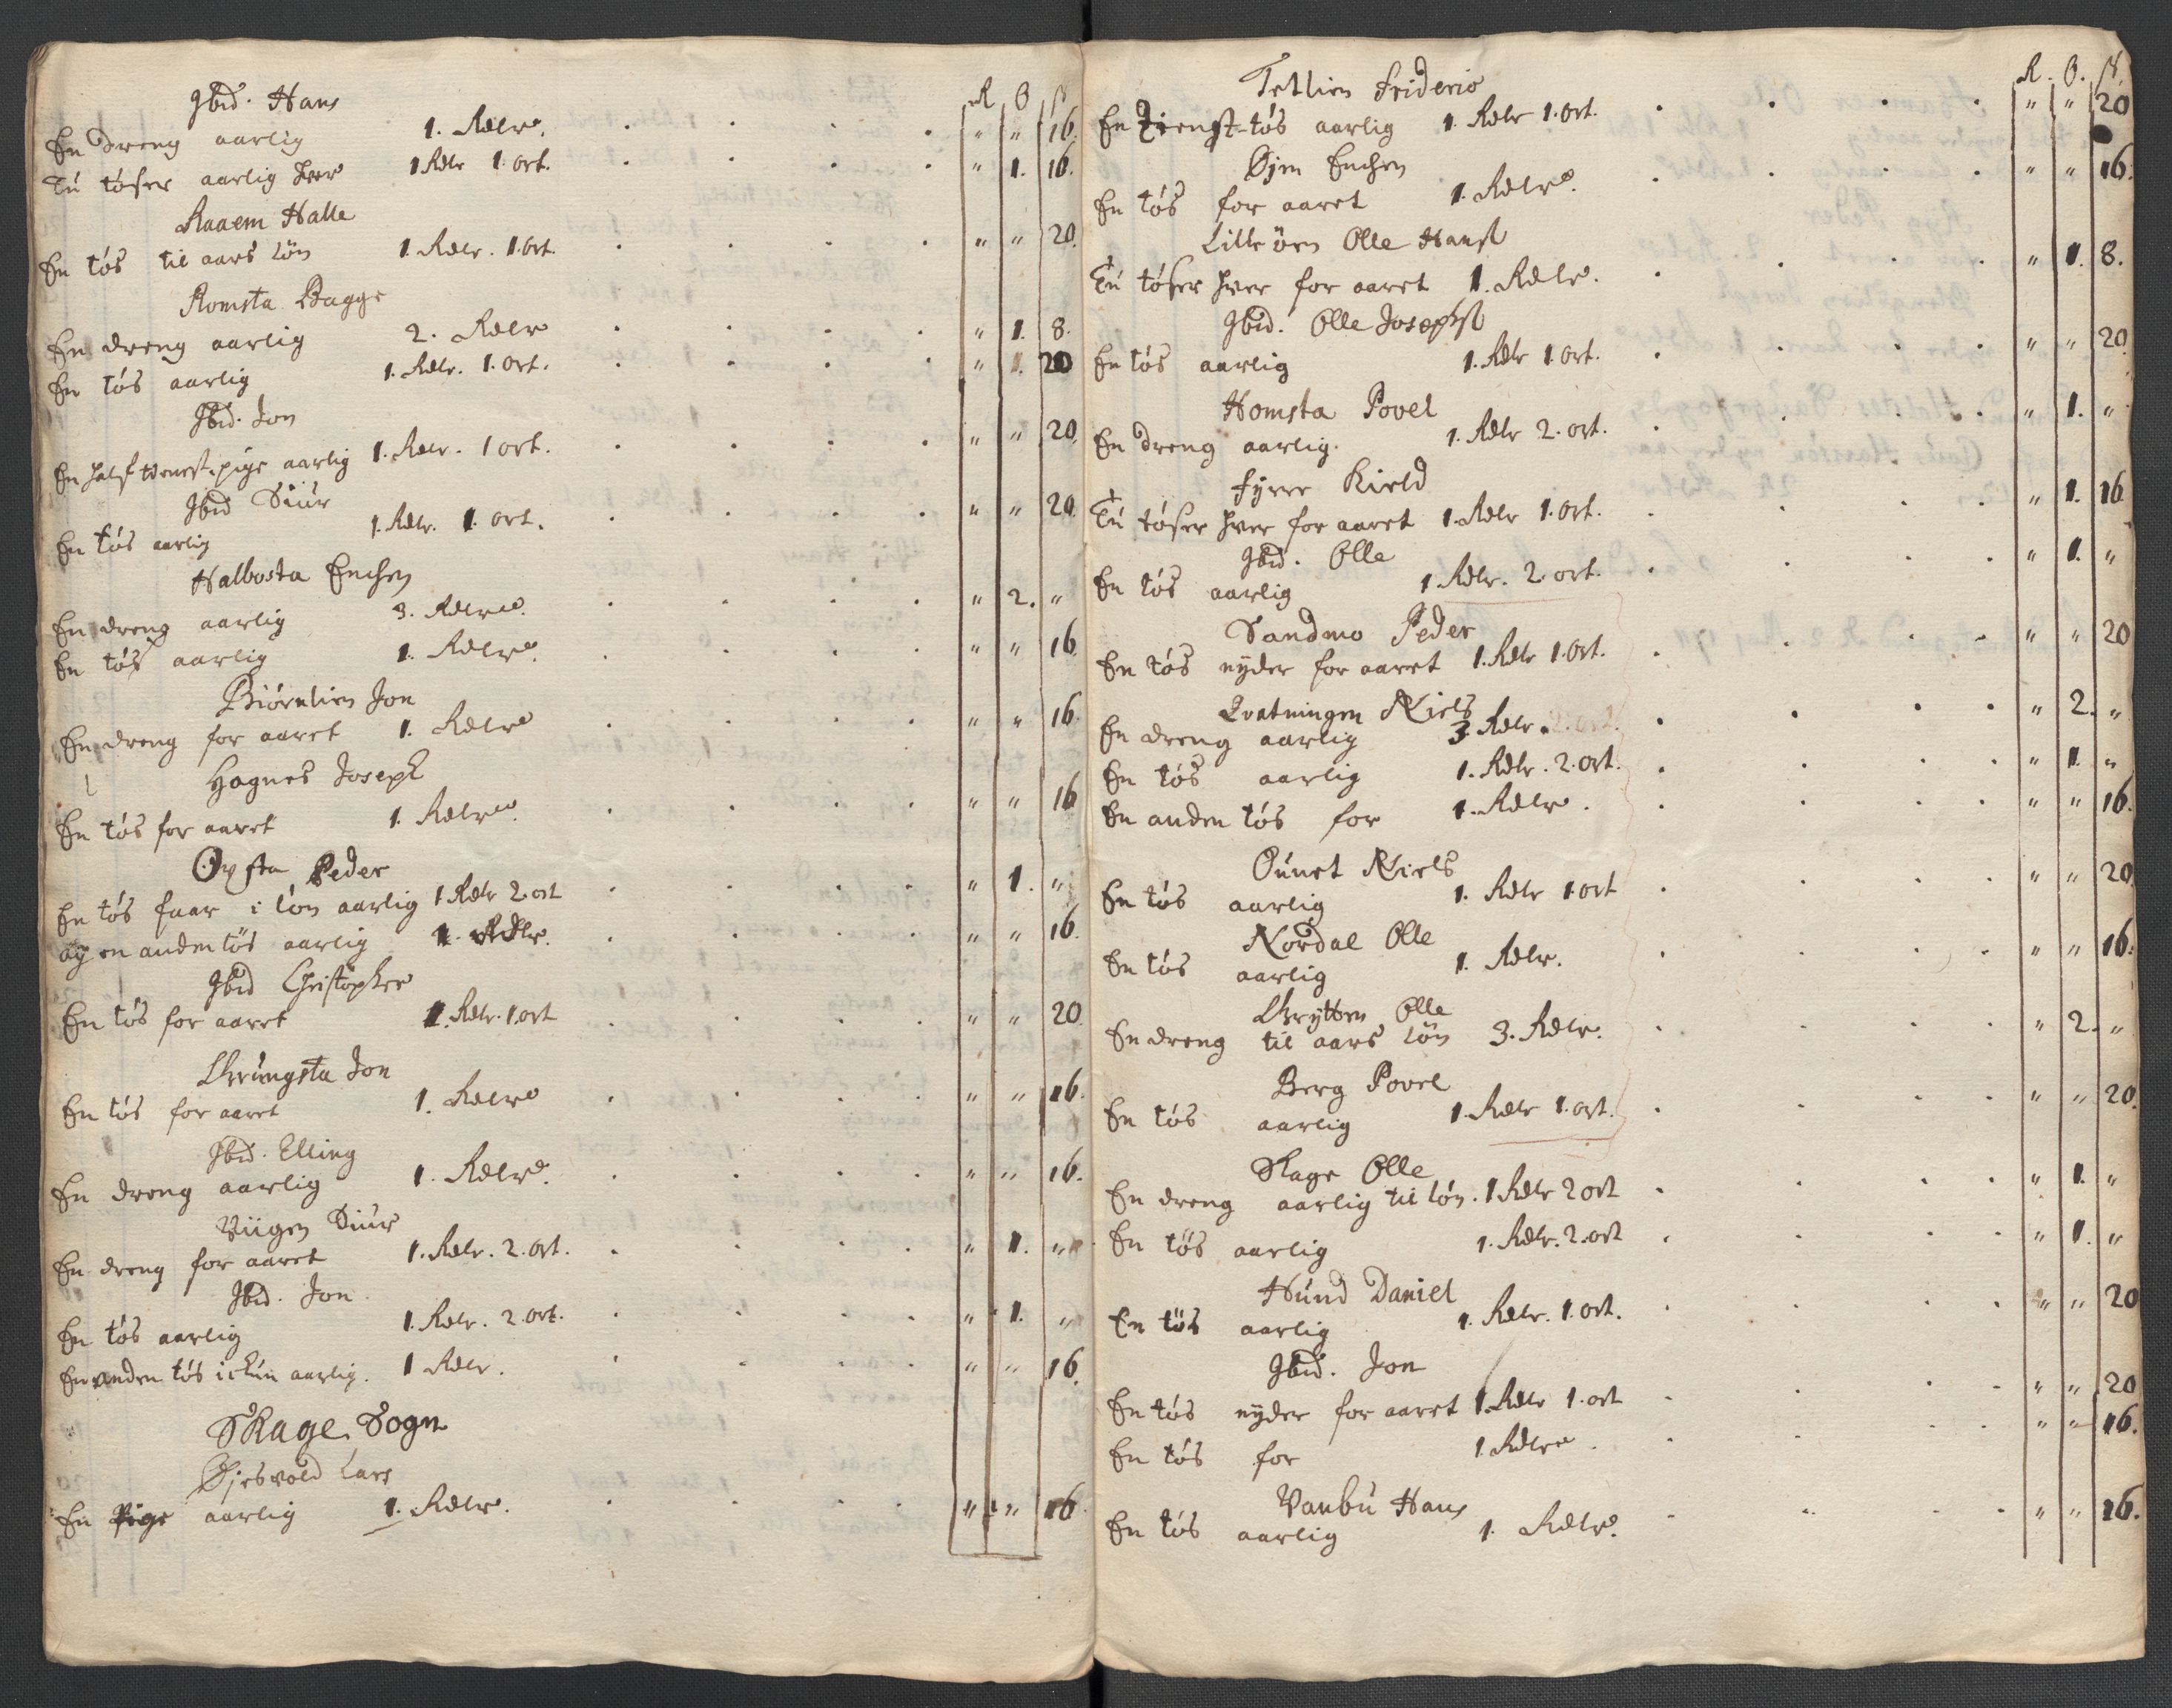 R O ß
Ibid. Hans
En dreng aarlig 1. Rdlr. " " 16.
Tu töser aarlig hver 1 Rdlr 1. ort. " 1. 16.
Raaem Halle
En tös til aars lön 1. Rdlr. 1. ort. " " 20.
Romsta Bagge
En dreng aarlig 2. Rdlr " 1. 8.
En tös aarlig 1. Rdlr. 1. ort. " 20
Ibid. Jon
En half tienest pige aarlig 1. Rdlr. 1 ort. " " 20.
Ibid Siur
En tös aarlig 1. Rdlr. 1. ort. " " 20.
Halbosta Enchen
En dreng aarlig 3. Rdlr. " 2. "
En tös aarlig 1. Rdlr. " " 16.
Biörnlien Jon
En dreng for aaret 1. Rdlr " " 16.
Hagnes Joseph
En tös for aaret 1. Rdlr. " " 16
Opsta Peder
En tös faar i lön aarlig 1 Rdlr 2 ort " 1. "
og en anden tös aarlig 1. Rdlr. " " 16.
Ibid Christopher
En tös for aaret 1. Rdlr. 1. ort " " 20.
Skrungsta Jon
En tös for aaret 1. Rdlr " " 16.
Ibid. Elling
En dreng aarlig 1. Rdlr. " " 16.
Viigen Siur
En dreng for aaret 1. Rdlr. 2. ort. " 1. "
Ibid. Jon
En tös aarlig 1. Rdlr. 2. ort. " 1. "
En anden tös ickun aarlig. 1 Rdlr. " " 16.
Skage Sogn
Giesvold Lars
En Pige aarlig 1. Rdlr. " " 16.
R. O. ß.
Tetlien Frideric
En Tienest-tös aarlig 1. Rdlr 1. ort. " " 20
Öjen Enchen
En tös for aaret 1. Rdlr. " " 16.
Lilleöen Olle Hansß
Tu töser hver for aaret 1. Rdlr. " 1. 8.
Ibid. Olle Josephß
En tös aarlig 1. Rdlr 1 ort. " " 20.
Homsta Povel
En dreng aarlig. 1. Rdlr 2. ort. " 1. "
Fyrre Kield
Tu töser hver for aaret 1. Rdlr 1. ort. " 1. 16
Ibid. Olle
En tös aarlig 1 Rdlr. 2 ort. " 1. "
Sandmo Peder
En tös nyder for aaret 1. Rdlr 1. ort. " " 20
Qvatningen Niels
En dreng aarlig 3 Rdlr. " 2. "
En tös aarlig 1. Rdlr. 2. ort. " 1. "
En anden tös for 1. Rdlr. " " 16.
Ounet Niels
En tös aarlig 1. Rdlr 1 ort " " 20.
Nordal Olle
En tös aarlig 1. Rdlr. " " 16.
Skrytten Olle
En dreng til aars lön 3. Rdlr. " 2. "
Berg Povel
En tös aarlig 1. Rdlr 1. ort. " " 20.
Skage Olle
En dreng aarlig til lön. 1 Rdlr 2 ort " 1. "
En tös aarlig 1. Rdlr. 2. ort " 1. "
Hund Daniel
En tös aarlig 1. Rdlr. 1. ort. " " 20
Ibid. Jon
En tös nyder for aaret 1. Rdlr 1. ort " " 20
En tös for 1. Rdlr. " " 16.
Vanbu Hans
En tös aarlig 1. Rdlr. " " 16.